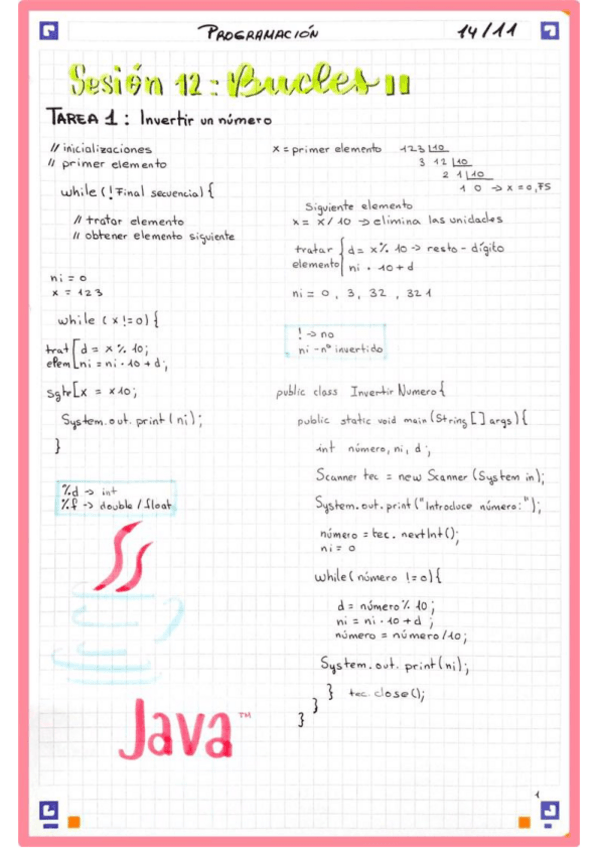 PROGRAMACIÓN
14/11
Sesión 12: Bucles II
TAREA 1: Invertir un número
// inicializaciones
// primer elemento
while (! Final secuencia) {
// tratar elemento
// obtener elemento siguiente
ni = 0
x = 123
while (x != 0) {
trat
elem
d = x % 10;
ni = ni · 10 + d;
sgte
x = x10;
System.out.print(ni);
}
%d -> int
%f -> double/float
Java™
x = primer elemento
123 |10
3 12 |10
2 1 |10
1 0 -> x = 0, FS
Siguiente elemento
x = x/10 -> elimina las unidades
tratar
elemento
d = x % 10 -> resto - dígito
ni · 10 + d
ni = 0, 3, 32, 321
! -> no
ni - nº invertido
public class Invertir Numero {
public static void main (String [] args) {
int número, ni, d;
Scanner tec = new Scanner (System in);
System.out.print ("Introduce número: ");
número = tec. nextInt();
ni = 0
while (número != 0) {
d = número % 10;
ni = ni · 10 + d;
número = número/10;
System.out. print(ni);
} tec.close();
}
}
1